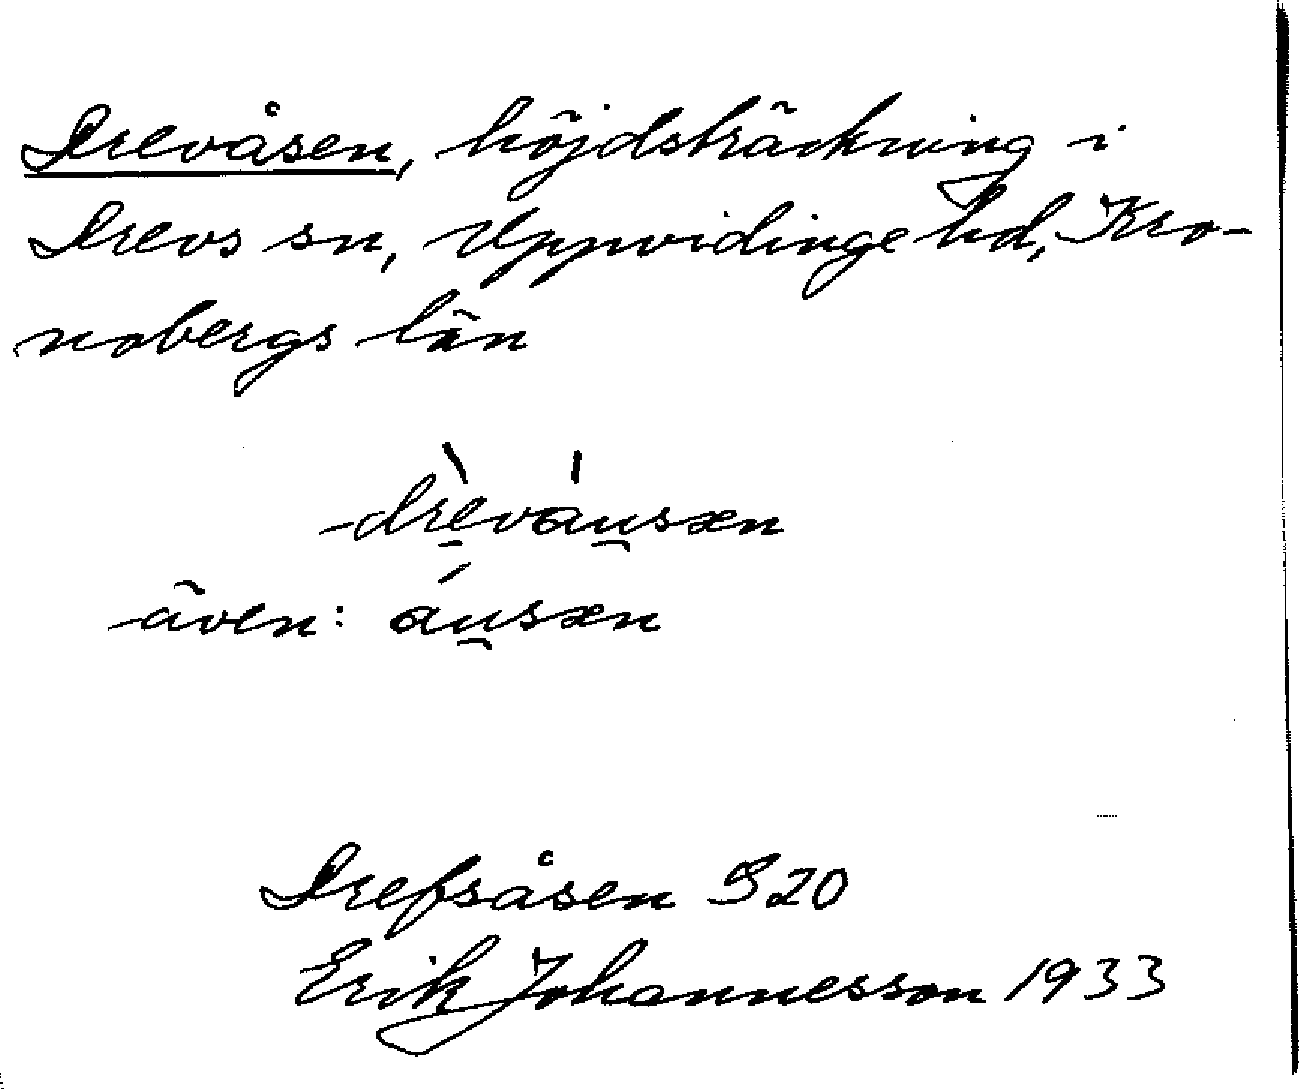 Drevåsen, höjdsträckning i
Drevs sn, Uppvidinge hd, Kro-
nobergs län
drè̠vàu̯sæn
även: áu̯sæn
Drefsåsen S20
Erik Johannesson 1933